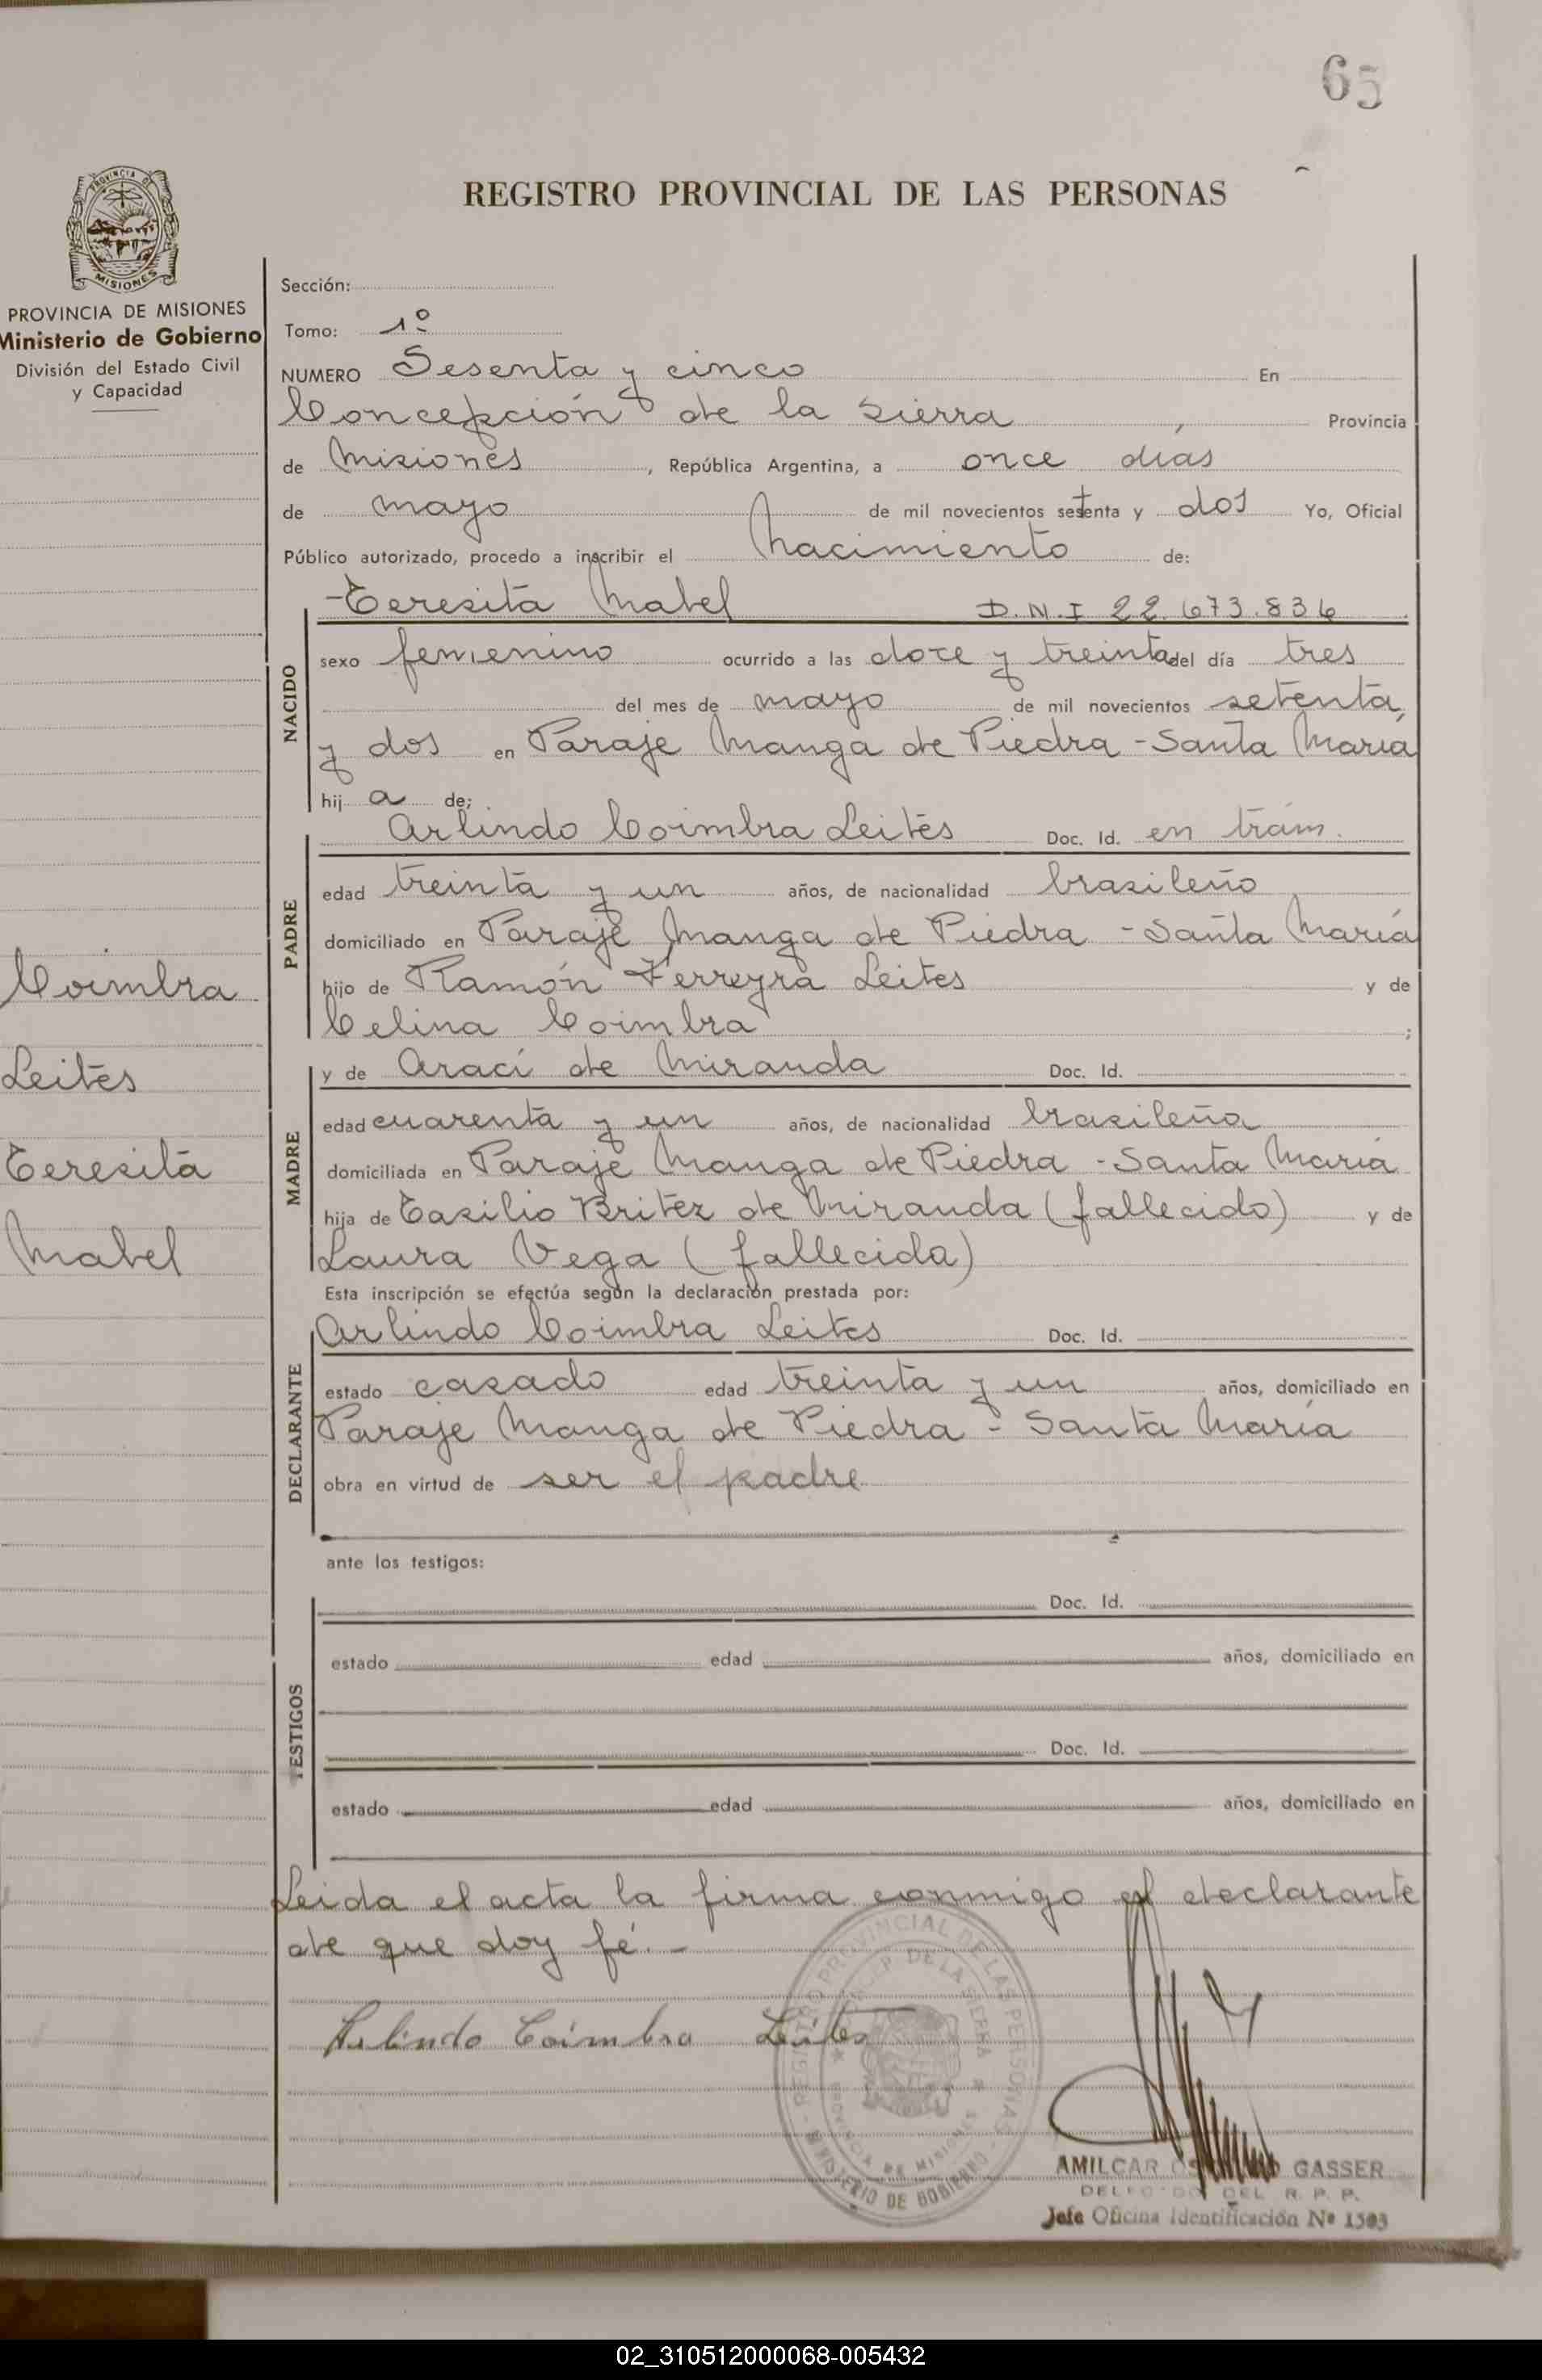 65
REGISTRO PROVINCIAL DE LAS PERSONAS
PROVINCIA DE MISIONES
PROVINCIA DE MISIONES
Ministerio de Gobierno
División del Estado Civil
y Capacidad
Coimbra
Leites
Teresita
Mabel
Sección:
Tomo: 1º
NUMERO Sesenta y cinco En
Concepción de la Sierra Provincia
de Misiones, República Argentina, a once días
de mayo de mil novecientos setenta y dos Yo, Oficial
Público autorizado, procedo a inscribir el Nacimiento de:
NACIDO
Teresita Mabel D.N.I 22.673.836
sexo femenino ocurrido a las doce y treinta del día tres
del mes de mayo de mil novecientos setenta
y dos en Paraje Manga de Piedra - Santa María
hij a de;
PADRE
Arlindo Coimbra Leites Doc. Id. en trám.
edad treinta y un años, de nacionalidad brasileño
domiciliado en Paraje Manga de Piedra - Santa María
hijo de Ramón Ferreyra Leites y de
Celina Coimbra ;
MADRE
y de Arací de Miranda Doc. Id.
edad cuarenta y un años, de nacionalidad brasileña
domiciliada en Paraje Manga de Piedra - Santa María
hija de Basilio Britez de Miranda (fallecido) y de
Laura Vega (fallecida)
Esta inscripción se efectúa según la declaración prestada por:
DECLARANTE
Arlindo Coimbra Leites Doc. Id.
estado casado edad treinta y un años, domiciliado en
Paraje Manga de Piedra - Santa María
obra en virtud de ser el padre
ante los testigos:
TESTIGOS
Doc. Id.
estado edad años, domiciliado en
Doc. Id.
estado edad años, domiciliado en
Leida el acta la firma conmigo el declarante
de que doy fé.-
Arlindo Coimbra Leites
REGISTRO PROVINCIAL DE LAS PERSONAS
CONCEP. DE LA SIERRA
PROVINCIA DE MISIONES
MINISTERIO DE GOBIERNO
AMILCAR GASSER
DELEGADO DEL R. P. P.
Jefe Oficina Identificación Nº 1503
02_310512000068-005432